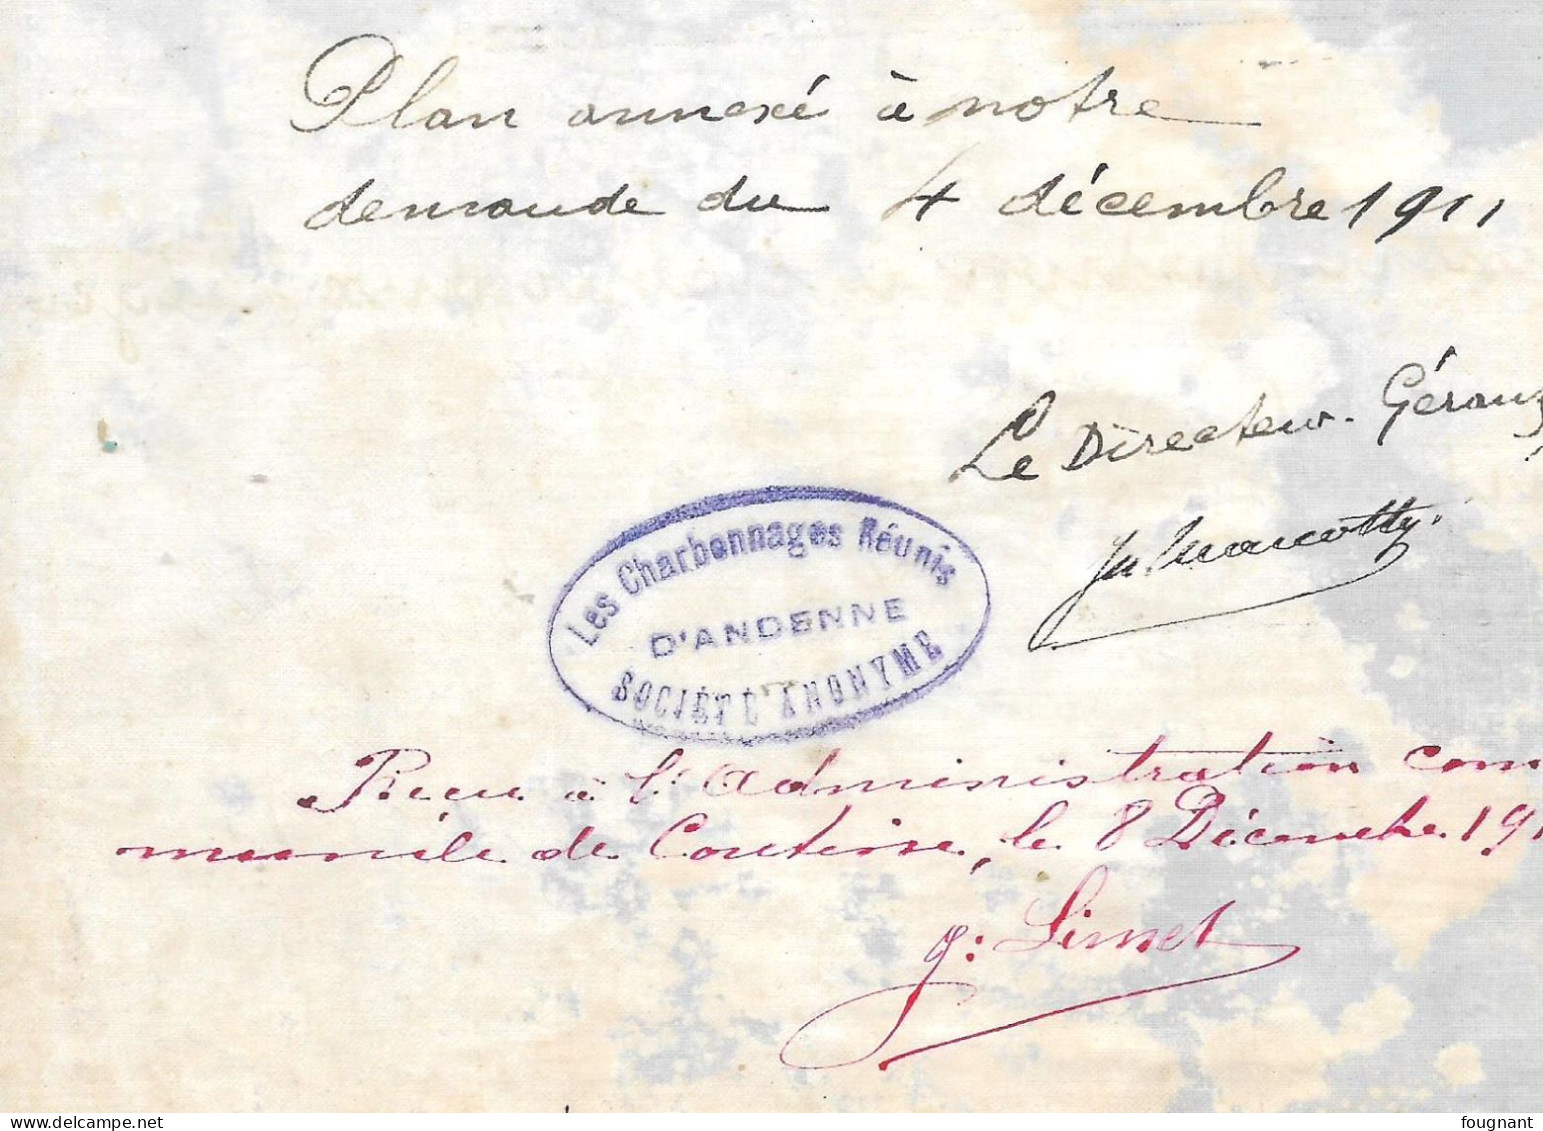 Plan annexé à notre
demande du 4 décembre 1911
Le Directeur-Gérant
Les Charbonnages Réunis
D'ANDENNE
SOCIÉTÉ ANONYME
Reçu à l'administration com
munale de Coutisse, le 8 Décembre 191
g: Limet
delcampe.net
fougnant